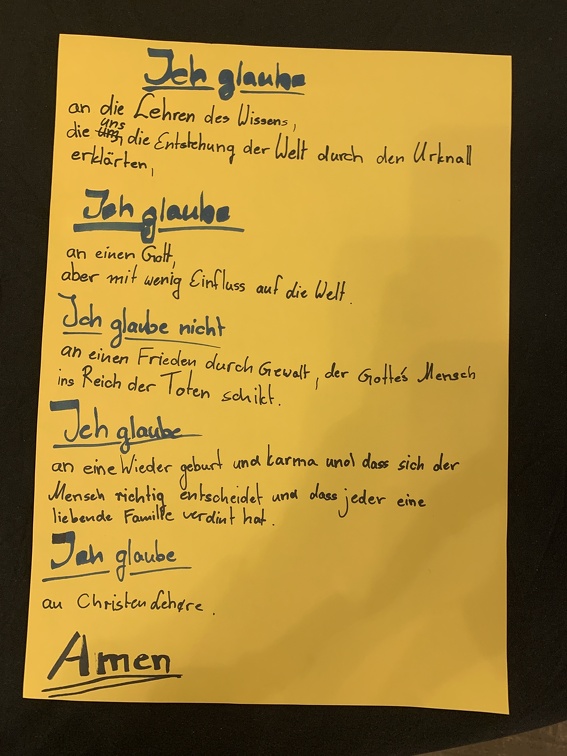 Ich glaube
an die Lehren des Wissens,
die uns die Entstehung der Welt durch den Urknall
erklärten,
Ich glaube
an einen Gott,
aber mit wenig Einfluss auf die Welt.
Ich glaube nicht
an einen Frieden durch Gewalt, der Gottes Mensch
ins Reich der Toten schikt.
Ich glaube
an eine Wieder geburt und karma und dass sich der
Mensch richtig entscheidet und dass jeder eine
liebende Familie verdint hat.
Ich glaube
an Christen Lehre.
Amen